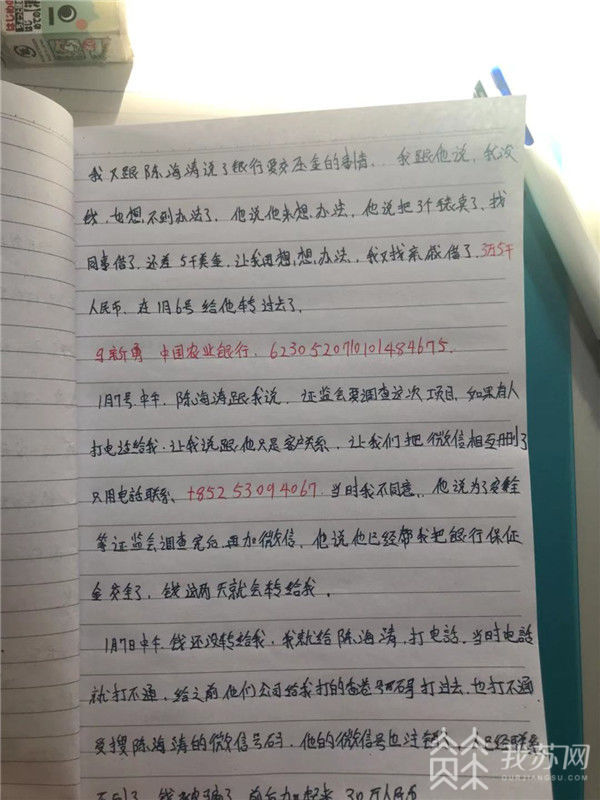 はじめの
我又跟陈海涛说了银行要交压金的事情.. 我跟他说,我没
钱,也想不到办法了. 他说他来想办法,他说把3个表卖了、找
同事借了,还差5千美金,让我再想,想,办法,我又找亲戚借了3万5千
人民币,在1月6号给他转过去了.
马新勇 中国农业银行. 6230520710101484675.
1月7号中午. 陈海涛跟我说. 证监会要调查这次项目,如果有人
打电话给我.让我说跟他只是客户关系. 让我们把微信相互删了
只用电话联系、+852 53094067. 当时我不同意. 他说为了安全
等证监会调查完后再加微信. 他说他已经帮我把银行保证
金交全了,钱这两天就会转给我.
1月7日中午.钱还没转给我,我就给陈海涛,打电话.当时电话
就打不通,给之前他们公司给我打的香港号码打过去,也打不通
搜陈海涛的微信号码,他的微信号也注
钱 30万人民币
我苏网
OURJIANGSU.COM